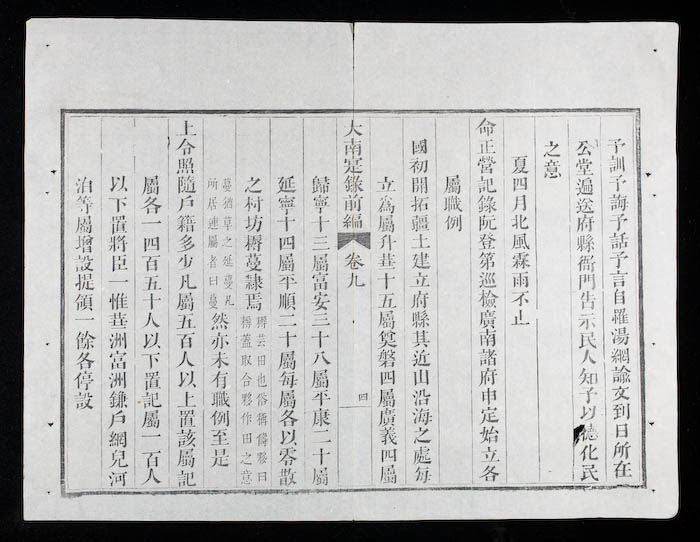 予訓予誨予話予言自罹湯網諭文到日所在
公堂遍送府縣衙門告示民人知予以德化民
之意
夏四月北風霖雨不止
命正營記錄阮登第巡檢廣南諸府申定始立各
屬職例
國初開拓疆土建立府縣其近山沿海之處每
立為屬升華十五屬奠磐四屬廣義四屬
大南寔錄前編
卷九
四
歸寧十三屬富安三十八屬平康二十屬
延寧十四屬平順二十屬每屬各以零散
之村坊耨蔓隸焉
耨芸田也俗稱儔耨曰
耨蓋取合夥作田之意
蔓猶草之延蔓凡
所居連屬者曰蔓
然亦未有職例至是
上令照隨戶籍多少凡屬五百人以上置該屬記
屬各一四百五十人以下置記屬一百人
以下置將臣一惟華洲富洲鎌戶網兒河
泊等屬增設提領一餘各停設